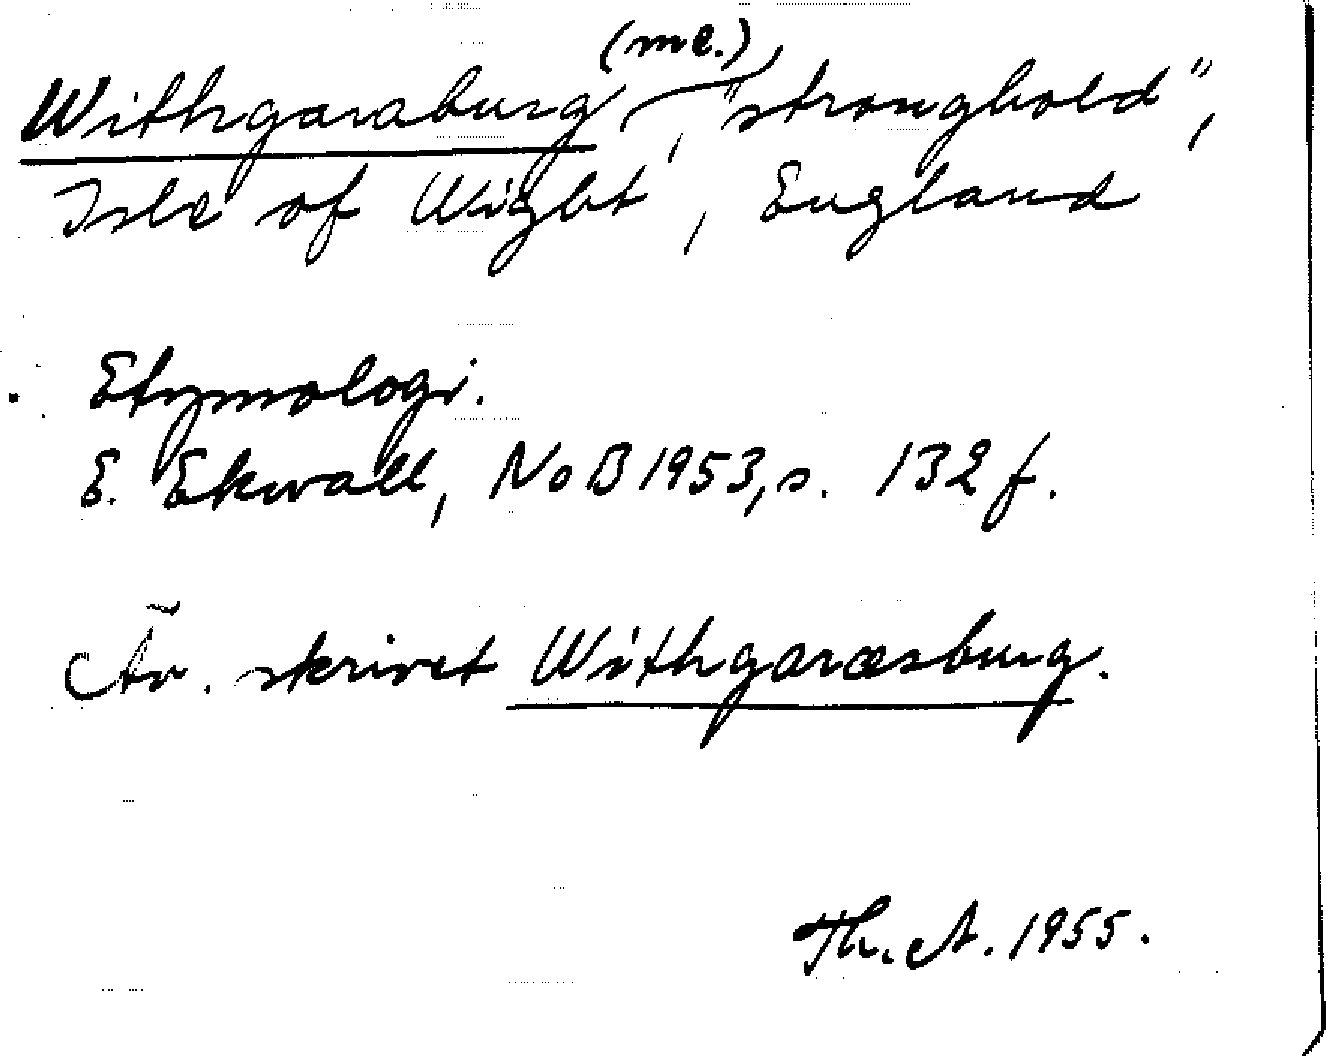 Withgaraburg (me.), "stronghold",
Isle of Wight, England
Etymologi.
E. Ekwall, NoB 1953, s. 132 f.
Äv. skrivet Withgaræsburg.
Th. A. 1955.